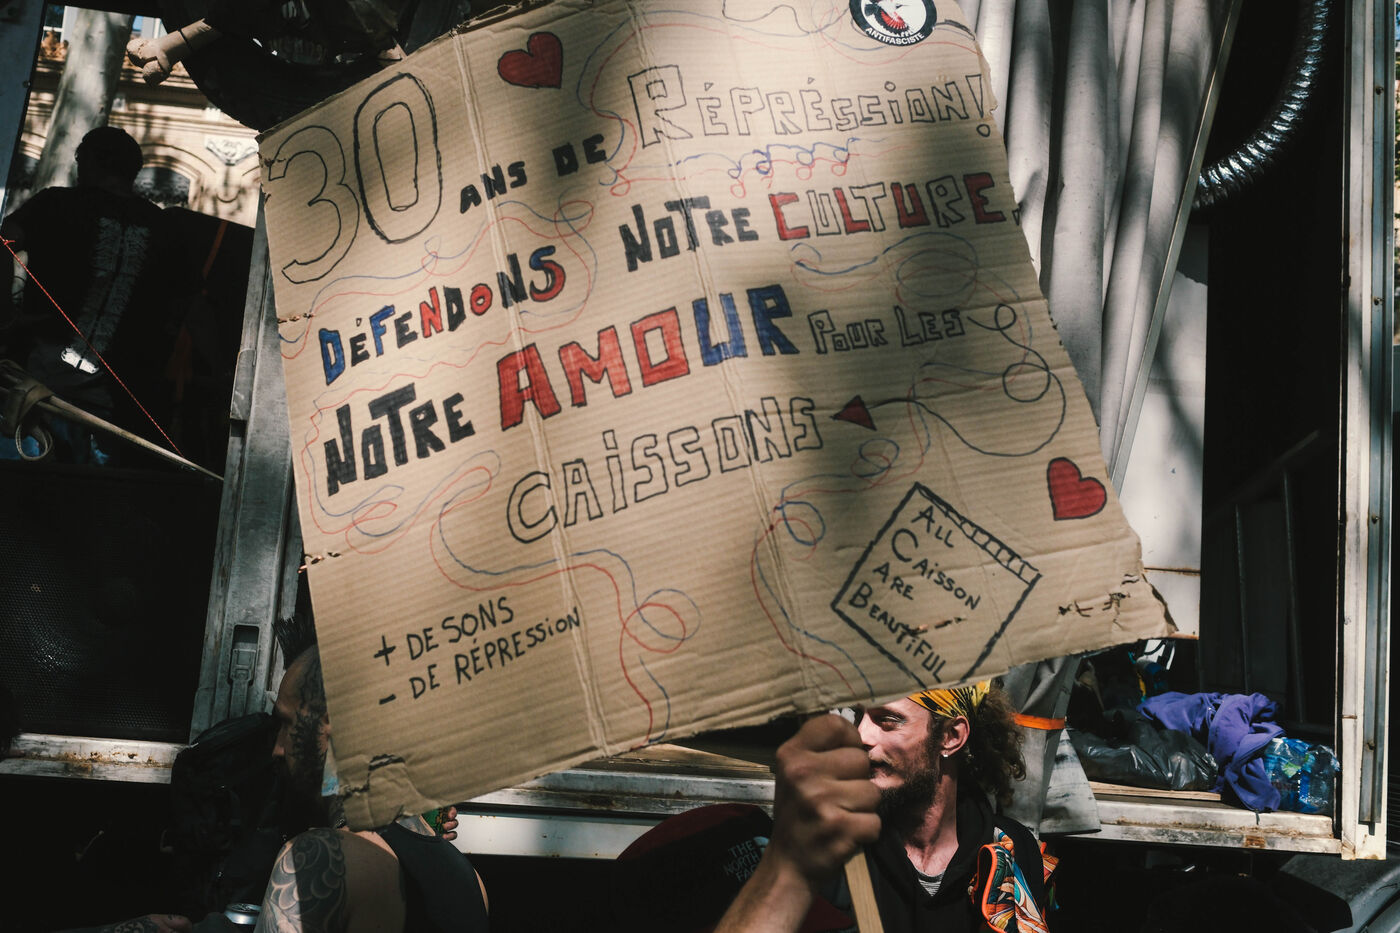 ANTIFASCISTE
30 ANS DE RÉPRÉSSION!
DÉFENDONS NOTRE CULTURE,
NOTRE AMOUR POUR LES
CAISSONS
+ DE SONS
- DE RÉPRESSION
ALL
CAISSON
ARE
BEAUTIFUL
THE
NORTH
FACE